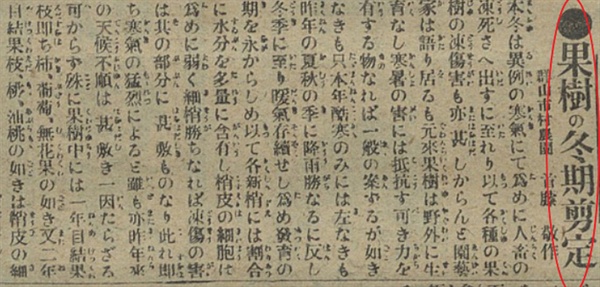 果樹の冬期剪定
本冬は異例の寒氣にて爲めに人畜の
凍死さへ出すに至れり以て各種の果
樹の凍傷害も亦甚しからんと園藝
家は語り居るも元來果樹は野外に生
育なし寒暑の害には抵抗す可き力を
有する物なれば一般の案ずるが如き
なきも只本年酷寒のみには左なきも
昨年の夏秋の季に降雨勝なるに反し
冬季に至り暖氣存續せし爲め發育の
期を永からしめ以て各新梢には割合
に水分を多量に含有し梢皮の細胞は
爲めに弱く細梢勝ちなれば凍傷の害
は其の部分に甚敷ものなり此れ即
ち寒氣の猛烈によると雖も亦昨年來
の天候不順は甚敷き一因たらざる
可からず殊に果樹中には一年目結果
枝即ち柿、葡萄、無花果の如き又二年
目結果枝、桃、油桃の如きは梢皮の細